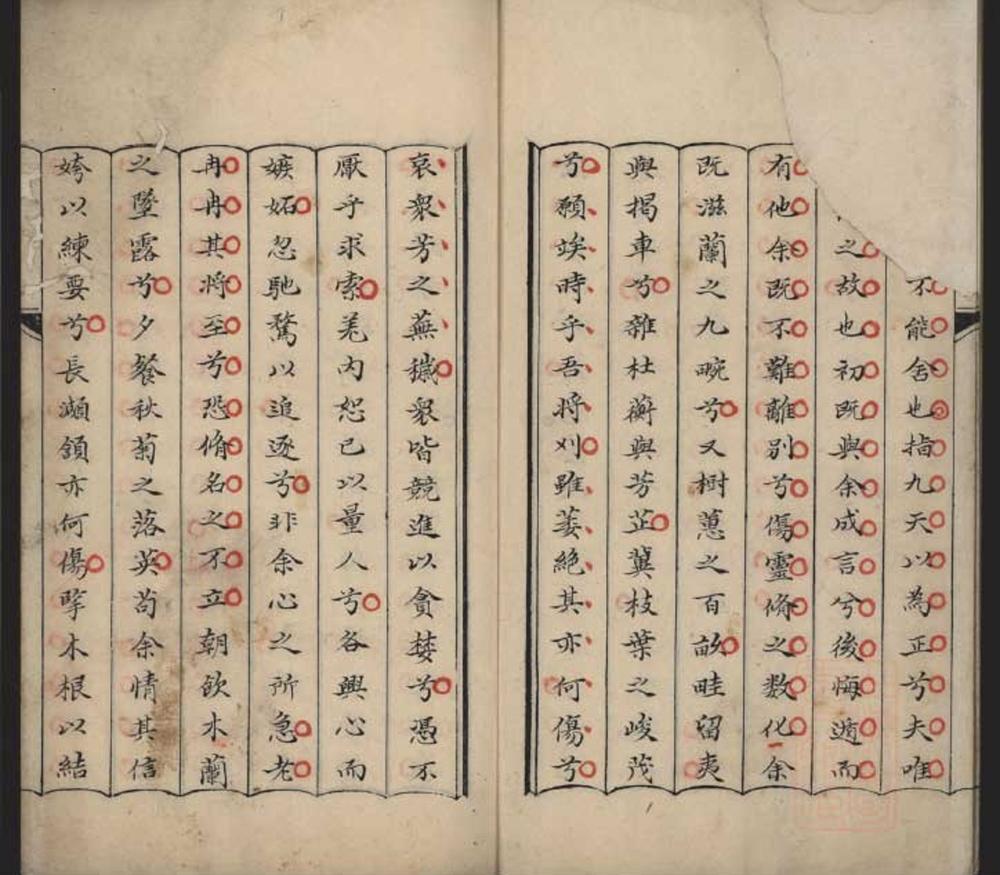 不能舍也指九天以為正兮夫唯
之故也初既與余成言兮後悔遁而
有他余既不難離別兮傷靈脩之数化余
既滋蘭之九畹兮又樹蕙之百畝畦留夷
與揭車兮雜杜蘅與芳芷冀枝葉之峻茂
兮願竢時乎吾將刈雖萎絕其亦何傷兮
哀衆芳之蕪穢衆皆競進以貪婪兮憑不
厭乎求索羌内恕已以量人兮各興心而
嫉妬忽馳騖以追逐兮非余心之所急老
冉冉其將至兮恐脩名之不立朝飲木蘭
之墜露兮夕餐秋菊之落英苟余情其信
姱以練要兮長顑頷亦何傷擥木根以結